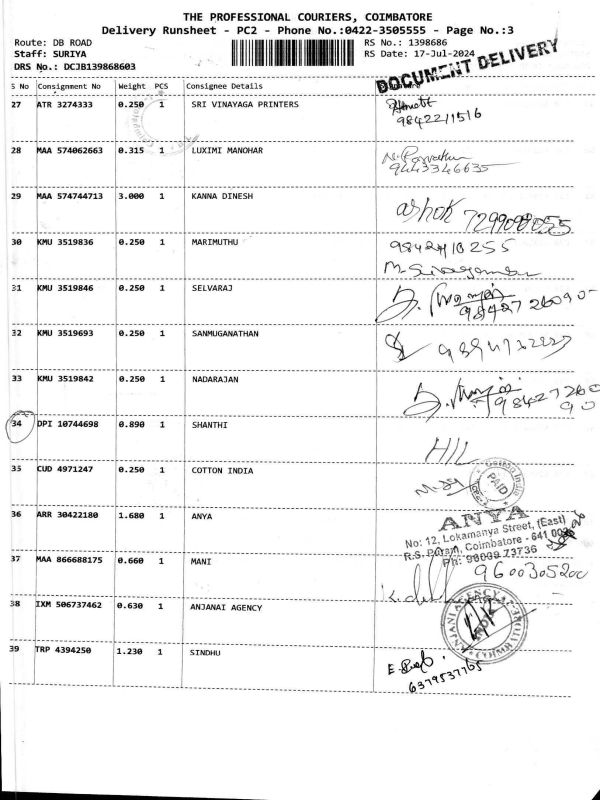 THE PROFESSIONAL COURIERS, COIMBATORE
Delivery Runsheet - PC2 - Phone No.:0422-3505555 - Page No.:3
Route: DB ROAD
RS No.: 1398686
Staff: SURIYA
RS Date: 17-Jul-2024
DRS No.: DCJB139868603
DOCUMENT DELIVERY
S No Consignment No Weight PCS Consignee Details
27 ATR 3274333 0.250 1 SRI VINAYAGA PRINTERS
9842211516
28 MAA 574062663 0.315 1 LUXIMI MANOHAR
9443346635
29 MAA 574744713 3.000 1 KANNA DINESH
ashok 7299098055
30 KMU 3519836 0.250 1 MARIMUTHU
9842110255
31 KMU 3519846 0.250 1 SELVARAJ
984272609 0
32 KMU 3519693 0.250 1 SANMUGANATHAN
33 KMU 3519842 0.250 1 NADARAJAN
98427260
90
34 DPI 10744698 0.890 1 SHANTHI
H/L
35 CUD 4971247 0.250 1 COTTON INDIA
PAID
36 ARR 30422180 1.680 1 ANYA
ANYA
No: 12, Lokamanya Street, (East)
R.S. Puram, Coimbatore - 641 002
37 MAA 866688175 0.660 1 MANI
9600305200
38 IXM 506737462 0.630 1 ANJANAI AGENCY
ANJANI AGENCY
39 TRP 4394250 1.230 1 SINDHU
6379537765